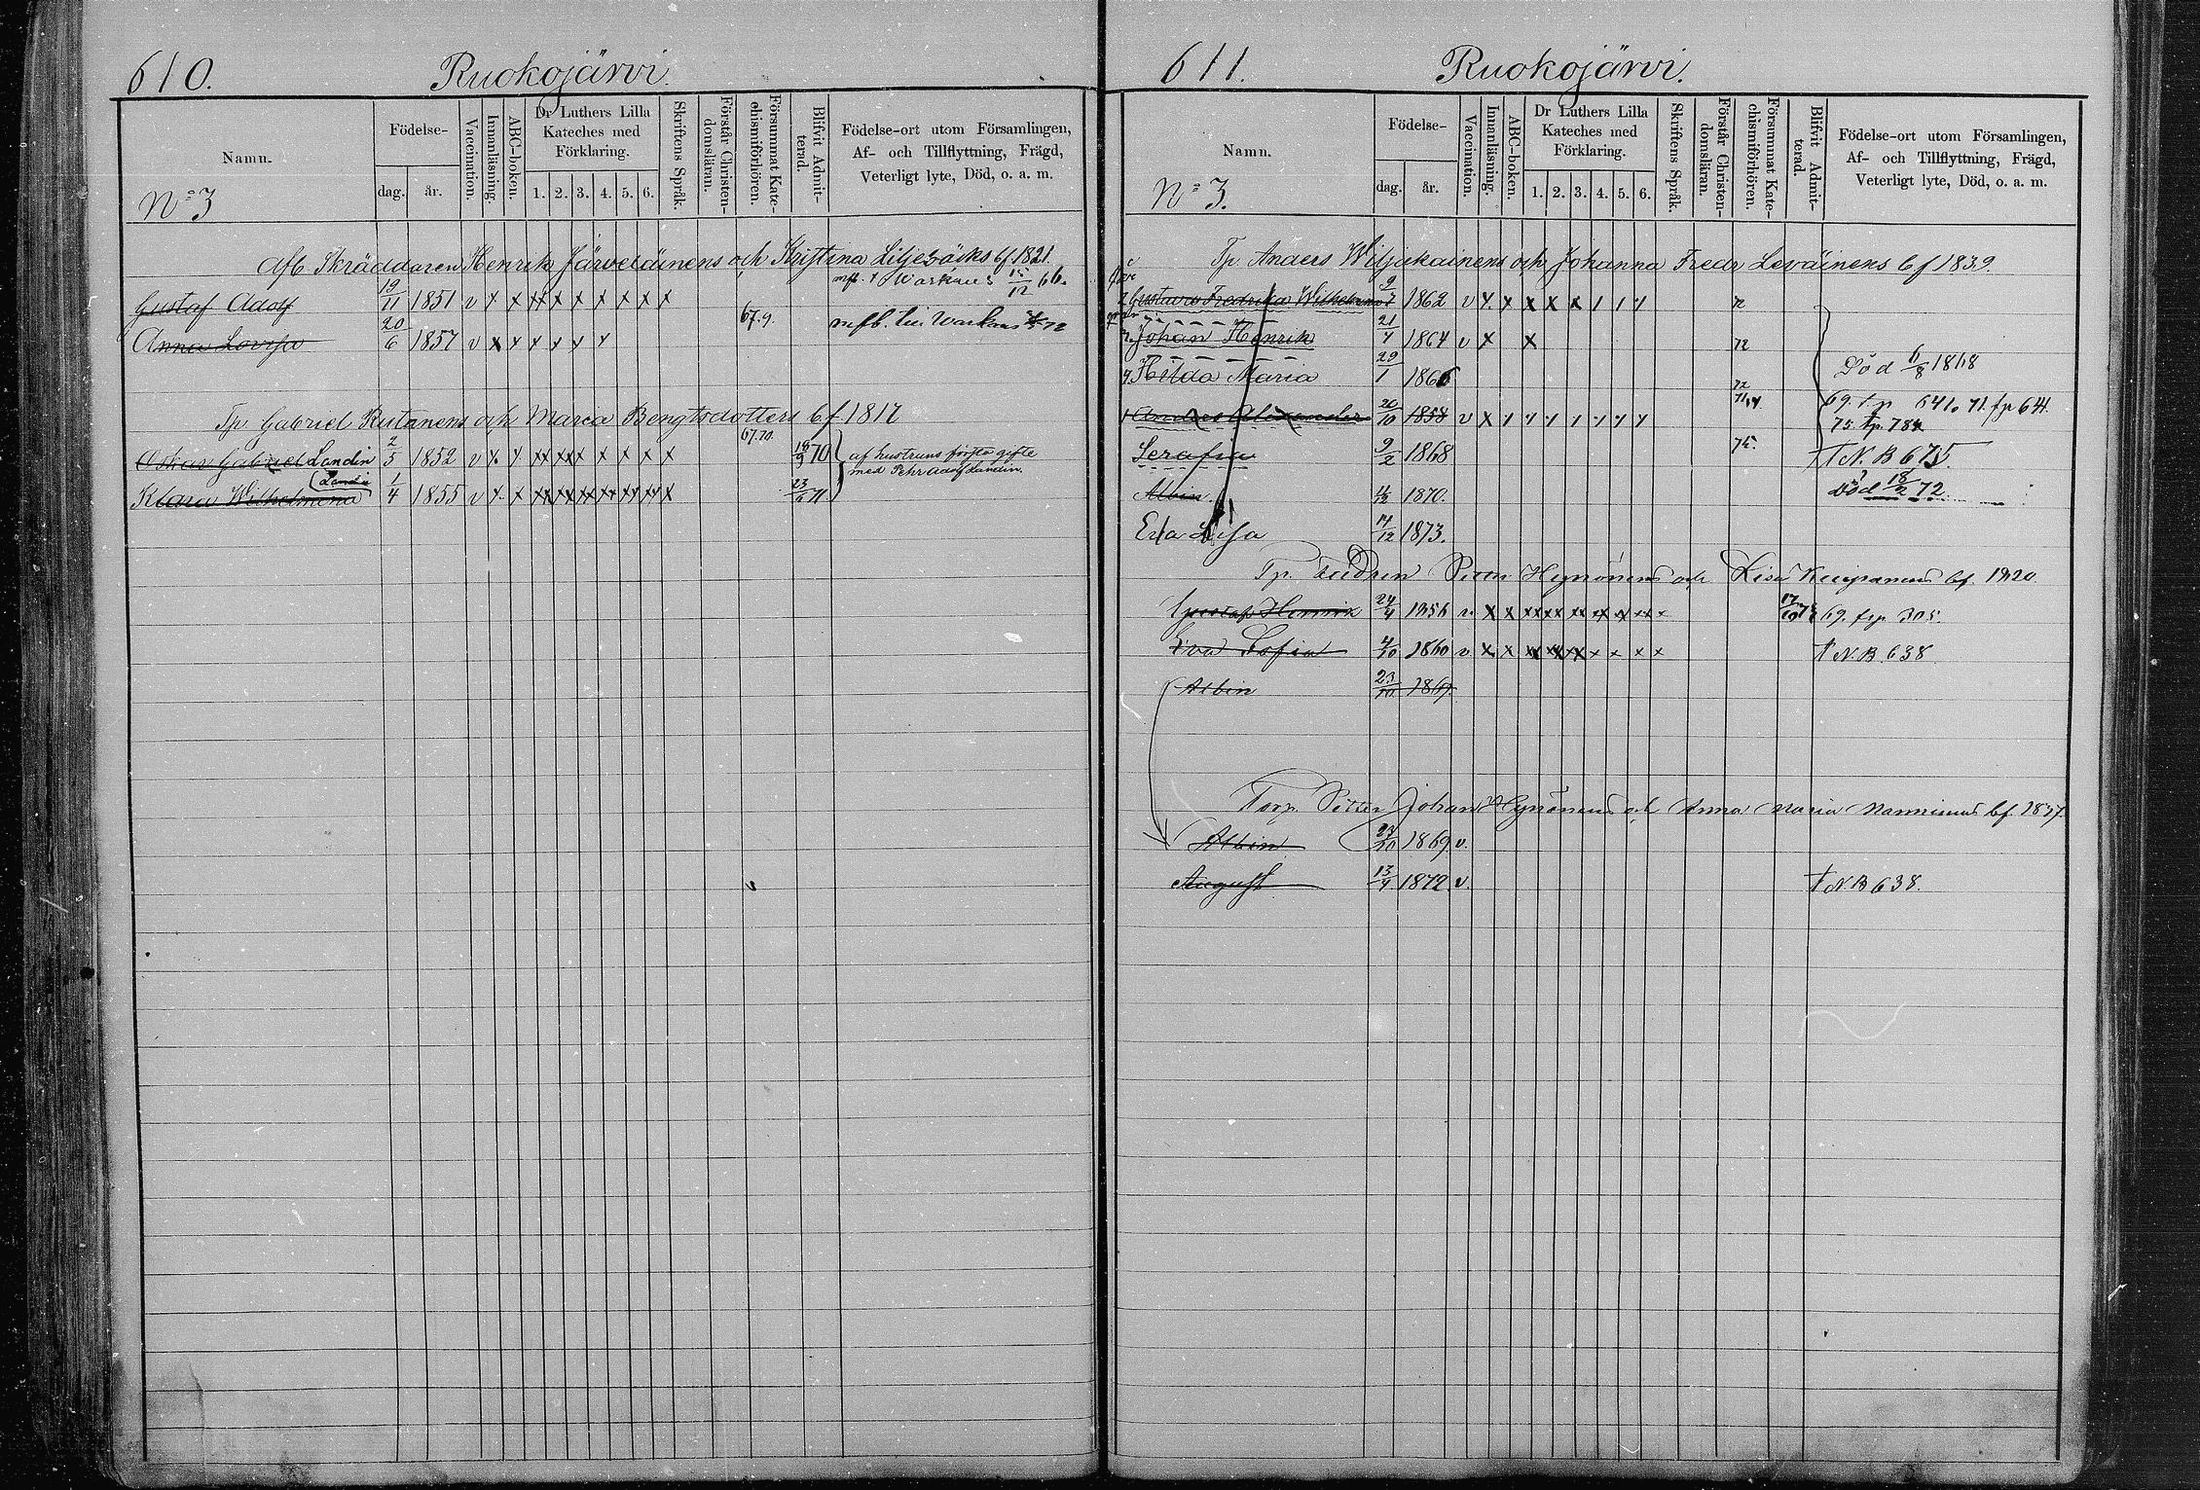 610. Ruokojärvi.
Namn. Födelse- Vaccination. Innanläsning. ABC-boken. Dr Luthers Lilla Kateches med Förklaring. Skriftens Språk. Förstår Christendomsläran. Försummat Katechismiförhören. Blifvit Admitterad. Födelse-ort utom Församlingen, Af- och Tillflyttning, Frägd, Veterligt lyte, Död, o. a. m.
dag. år. 1. 2. 3. 4. 5. 6.
No 3
Afb. Skräddaren Henrik Järveläinens och Kristina Liljebäcks bf 1821.
Gustaf Adolf 19/11 1851 v x x xx x x x x x x mfb. t Warkaus 15/12 66.
Anna Lovisa 20/6 1857 v x x x x x x 67.9. mfb. till Warkaus 72
Tp. Gabriel Rutanens och Maria Bengtsdotters bf 1817
Oskar Gabriel Landin 2/5 1852 v x x xx xx x x x x x 67.70. 18/9 70 af hustruns första gifte
med Pehr Adolf Landin.
Landin
Klara Wilhelmina 1/4 1855 v x x xx xx xx xx xx xx x 23/6 71
611. Ruokojärvi.
Namn. Födelse- Vaccination. Innanläsning. ABC-boken. Dr Luthers Lilla Kateches med Förklaring. Skriftens Språk. Förstår Christendomsläran. Försummat Katechismiförhören. Blifvit Admitterad. Födelse-ort utom Församlingen, Af- och Tillflyttning, Frägd, Veterligt lyte, Död, o. a. m.
dag. år. 1. 2. 3. 4. 5. 6.
No 3.
Tp. Anders Wiljakainens och Johanna Fredr Leväinens bf 1839.
Gustava Fredrika Wilhelmina 9/7 1862 v x x x x x 72
Johan Henrik 21/4 1864 v x x 72
Hilda Maria 29/1 1866 72 Död 6/8 1868
Anders Alexander 20/10 1858 v x 69. tp 641. 71. fp 641.
75. tp. 784
Serafia 9/2 1868 75. † N. B 675.
Albin 1870. Död 18/2 72
Eva Lisa 14/12 1873.
Tp. Enedren Petter Hyvönens och Lisa Kuipanens bf. 1820
Gustaf Henrik 24/4 1856 v x x xx xx xx xx x xx x 69. fp. 305.
Eva Sofia 4/10 1860 v x x xx xx xx x x x x † N. B. 638
Albin 23/10 1869.
Torp. Petter Johan Hyvönens och Anna Maria Manninens bf. 1837.
Albin 23/10 1869 v.
August 13/4 1872 v. † N. B 638.